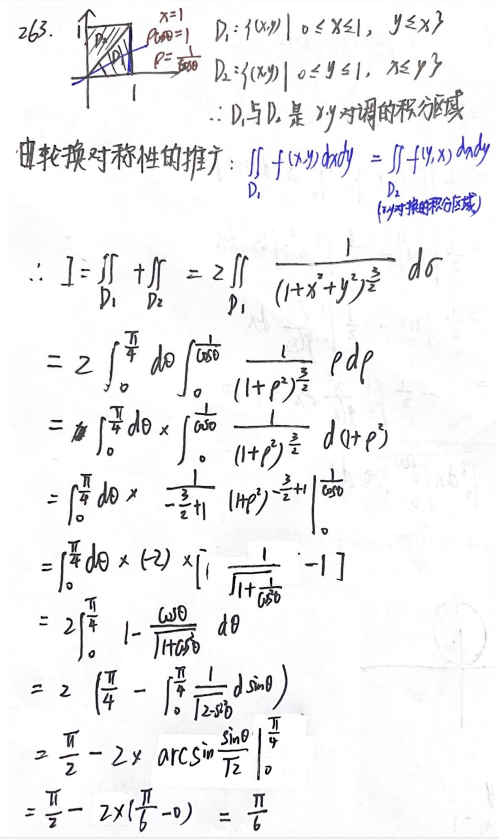 263.
1
D₂
D₁
1
x=1
ρcosθ=1
ρ=1/cosθ
D₁:{(x,y)| 0≤x≤1, y≤x}
D₂={(x,y)| 0≤y≤1, x≤y}
∴ D₁与D₂是x,y对调的积分区域
由轮换对称性的推广: ∬_{D₁} f(x,y)dxdy = ∬_{D₂} f(y,x)dxdy
(x,y对换的积分区域)
∴ I=∬_{D₁}+∬_{D₂} = 2∬_{D₁} 1/(1+x²+y²)^{3/2} dσ
= 2∫_0^{π/4} dθ ∫_0^{1/cosθ} 1/(1+ρ²)^{3/2} ρdρ
= ∫_0^{π/4} dθ × ∫_0^{1/cosθ} 1/(1+ρ²)^{3/2} d(1+ρ²)
= ∫_0^{π/4} dθ × 1/(-3/2+1) (1+ρ²)^{-3/2+1} |_0^{1/cosθ}
= ∫_0^{π/4} dθ × (-2) × [1/√(1+1/cos²θ) -1]
= 2∫_0^{π/4} 1- cosθ/√(1+cos²θ) dθ
= 2 (π/4 - ∫_0^{π/4} 1/√(2-sin²θ) dsinθ)
= π/2 - 2× arcsin sinθ/√2 |_0^{π/4}
= π/2 - 2×(π/6 -0) = π/6